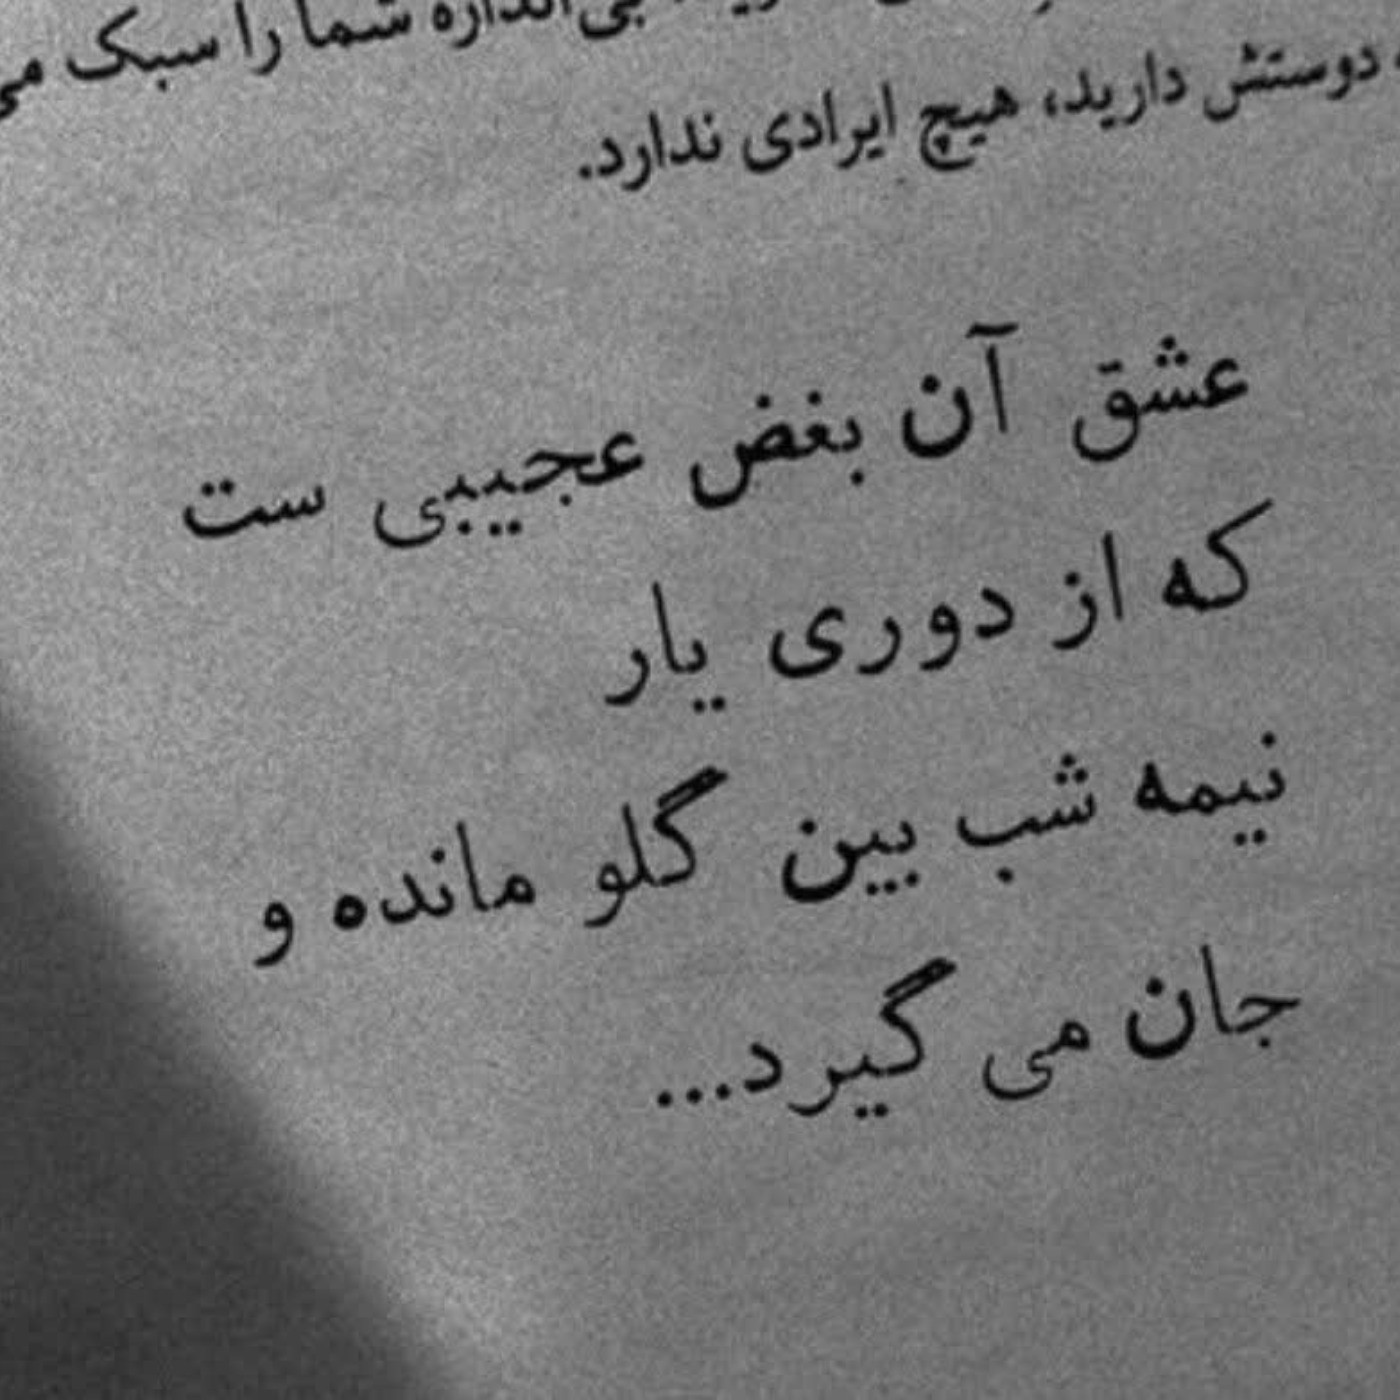 بی‌اندازه شما را سبک
دوستش دارید، هیچ ایرادی ندارد.
عشق آن بغض عجیبی ست
که از دوری یار
نیمه شب بین گلو مانده و
جان می گیرد...